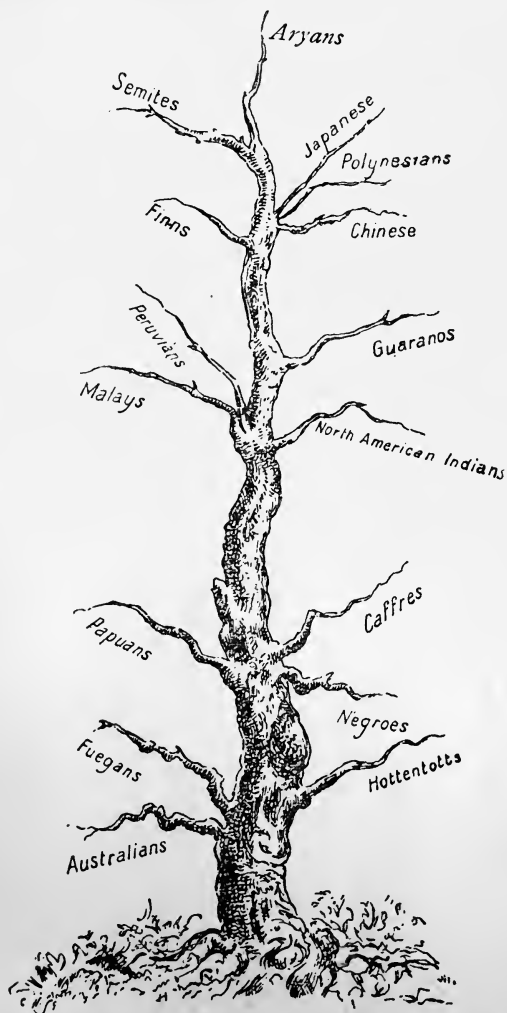 Aryans
Semites
Japanese
Polynesians
Finns
Chinese
Peruvians
Guaranos
Malays
North American Indians
Caffres
Papuans
Negroes
Fuegans
Hottentotts
Australians